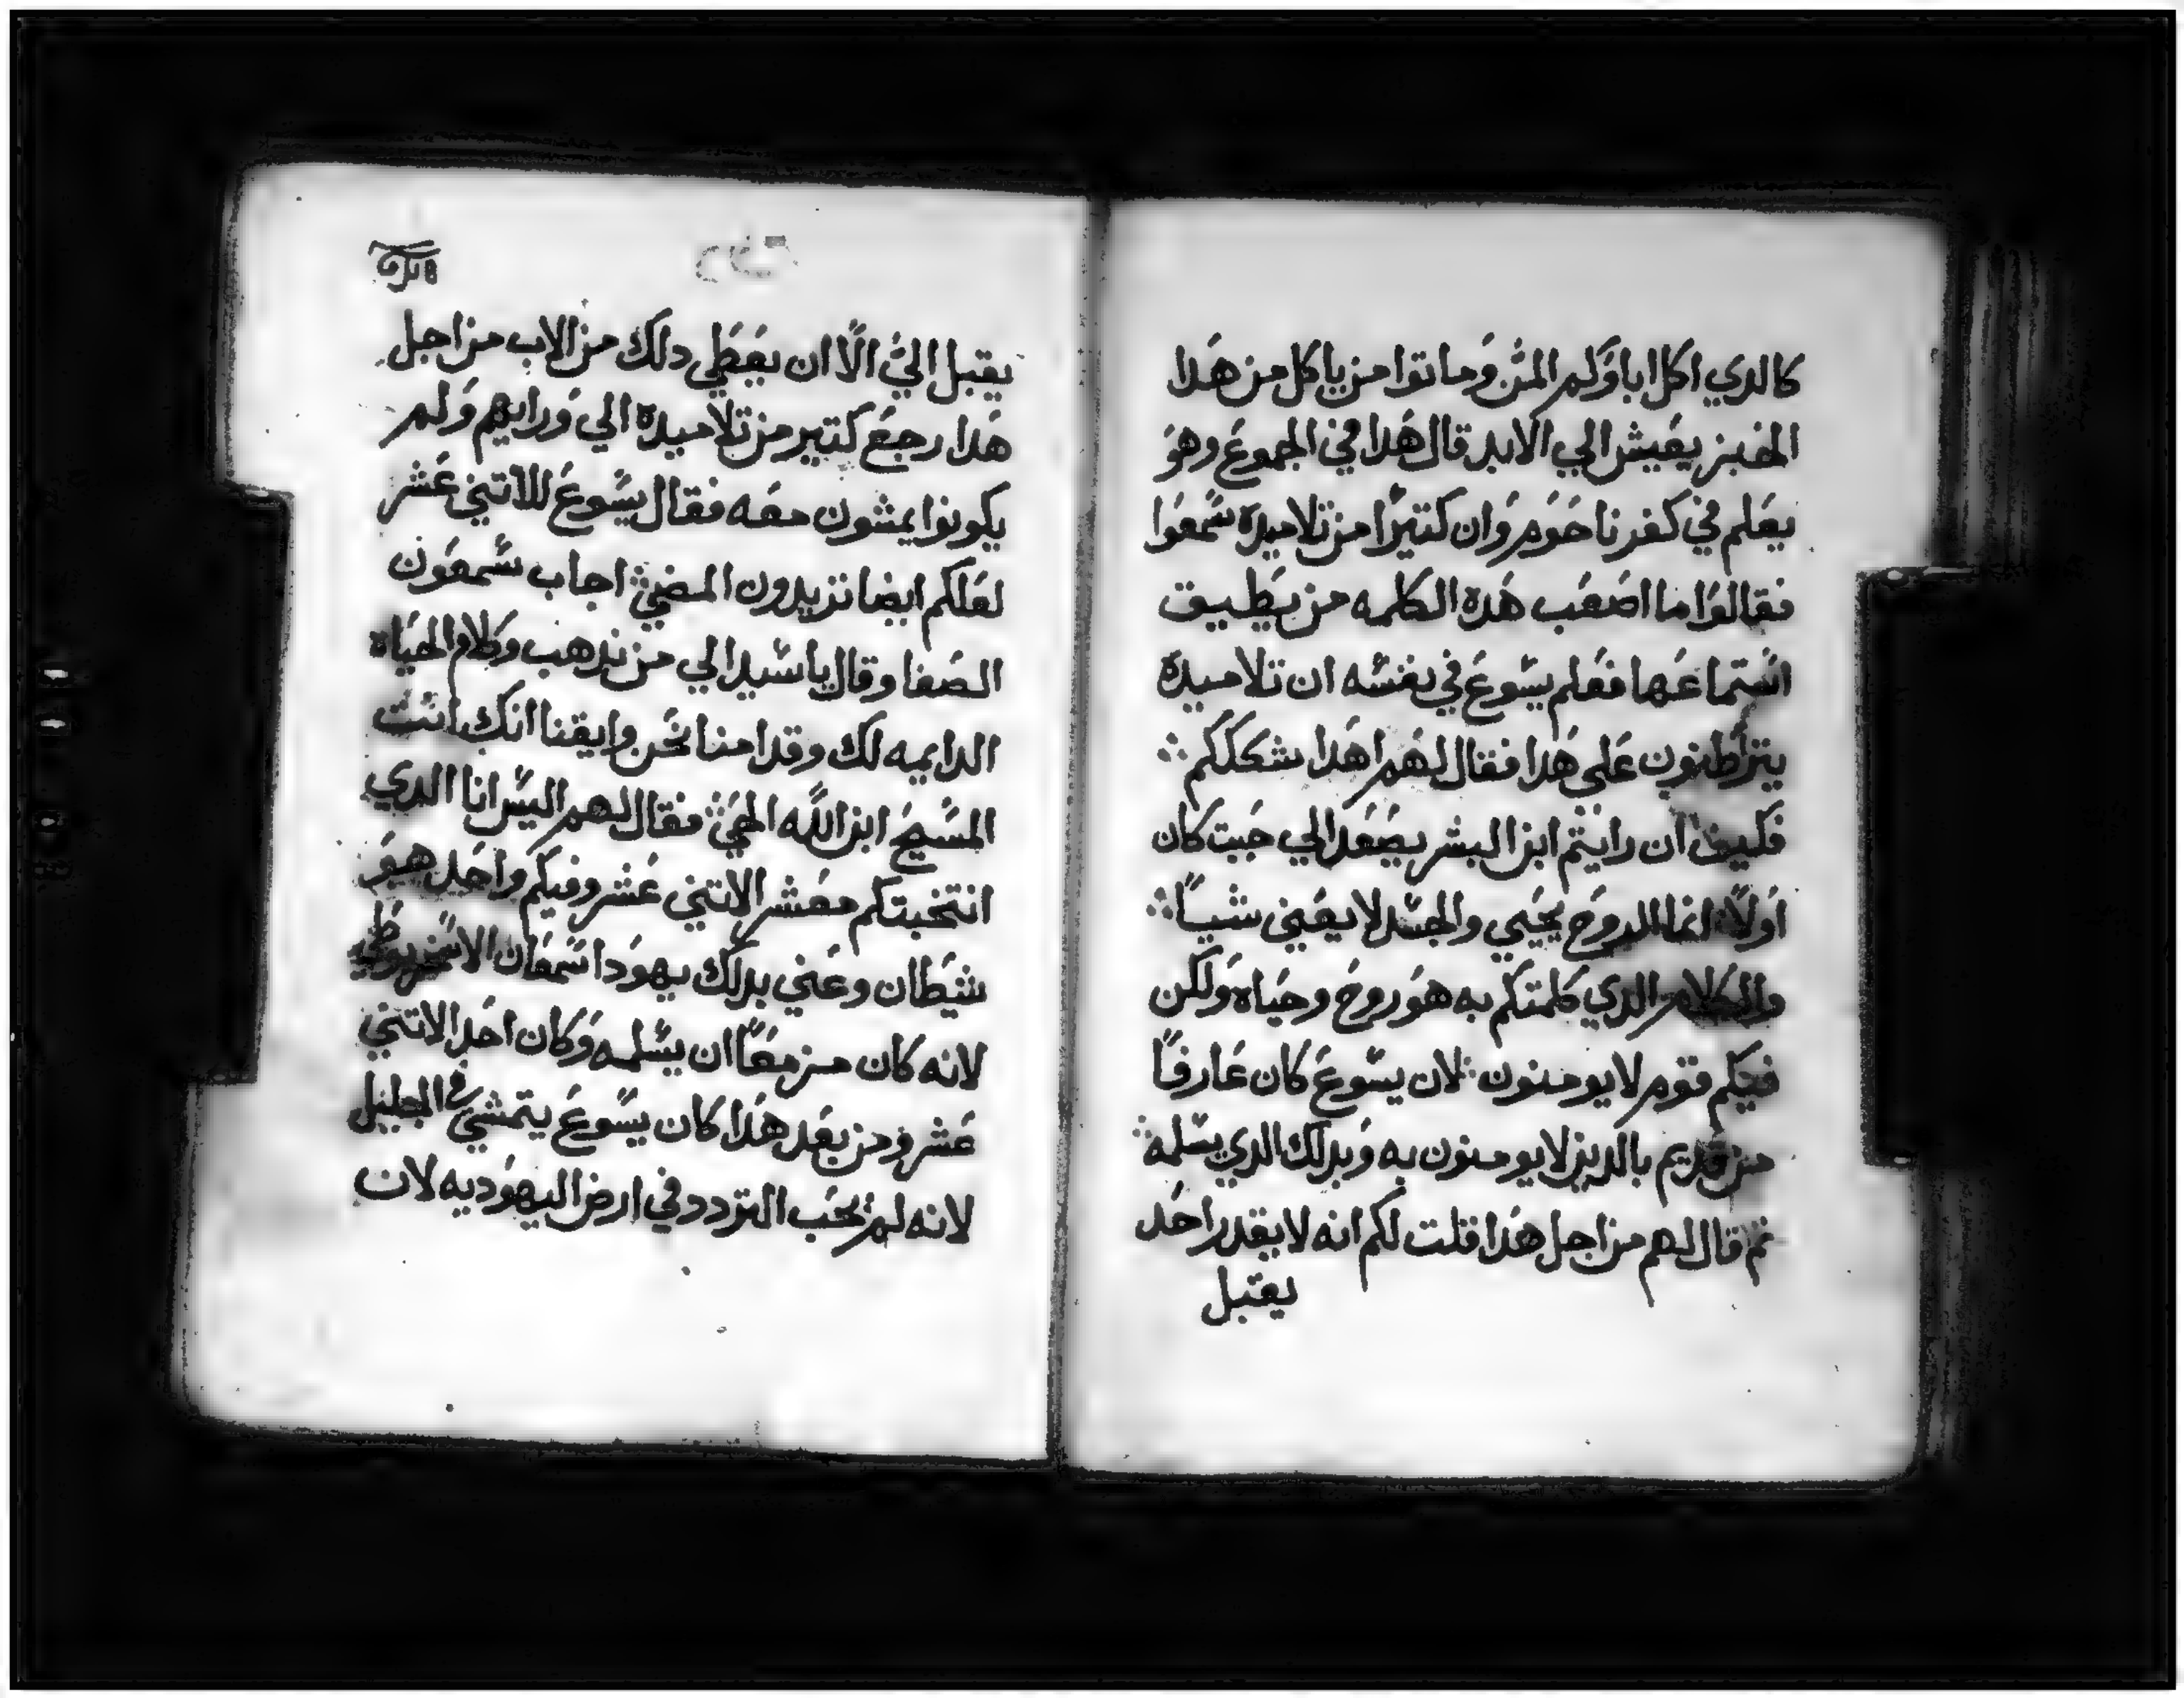 كالدي اكل اباوكم المن وماتوا من ياكل من هدا
الخبز يعيش الي الابد قال هدا في المجموع وهو
يعلم في كفرناحوم وان كتيرا من تلاميده سمعوا
فقالوا ما اصعب هده الكلمه من يطيق
استماعها فعلم يسوع في نفسه ان تلاميده
يتراطنون علي هدا فقال لهم اهدا شكككم
فكيف ان رايتم ابن البشر يصعد الي حيت كان
اولا انما الروح يحيي والجسد لا يعني شيا
والكلام الدي كلمتكم به هو روح وحياه ولكن
فيكم قوم لا يومنون لان يسوع كان عارفا
من قديم بالدين لا يومنون به وبدلك الدي يسلمه
تم قال لهم من اجل هدا قلت لكم انه لا يقدر احد
يقبل
يقبل الي الا ان يعطي دلك من الاب من اجل
هدا رجع كتير من تلاميده الي ورايهم ولم
يكونوا يمشون معه فقال يسوع للاتني عشر
لعلكم ايضا تريدون المضي اجاب سمعون
الصفا وقال يا سيد الي من ندهب وكلام الحياه
الدايمه لك وقد امنا نحن وايقنا انك انت
المسيح ابن الله الحي فقال لهم اليس انا الدي
انتخبتكم معشر الاتني عشر وفيكم واحد هو
شيطان وعني بدلك يهودا سمعان الاسخريوطي
لانه كان مزمعا ان يسلمه وكان احد الاتني
عشر ومن بعد هدا كان يسوع يتمشي في الجليل
لانه لم يحب التردد في ارض اليهوديه لان